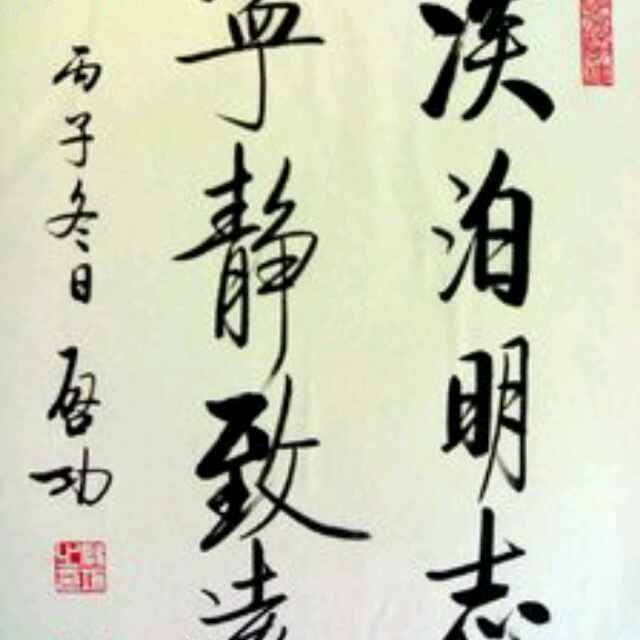 淡泊明志
寧靜致遠
丙子冬日
啓功